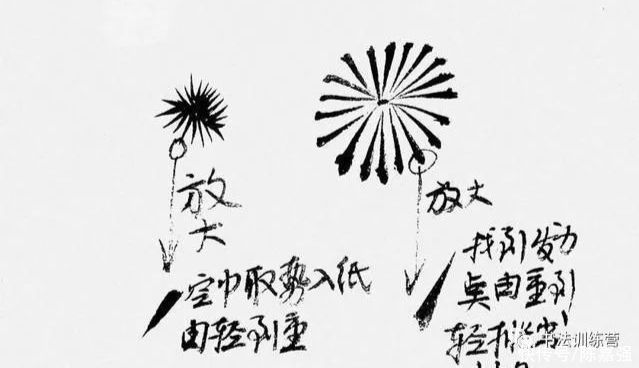 放
大
空中取势入纸
由轻到重
放大
找到发力
点由重到
轻
书法训练营
快传号/陈嘉强